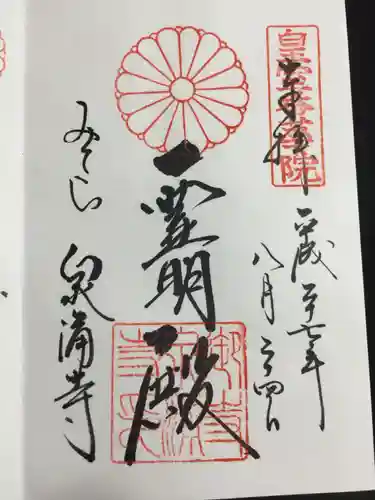 皇霊奉護院
奉拝
平成二十七年
八月二十四日
霊明殿
みてら
泉涌寺